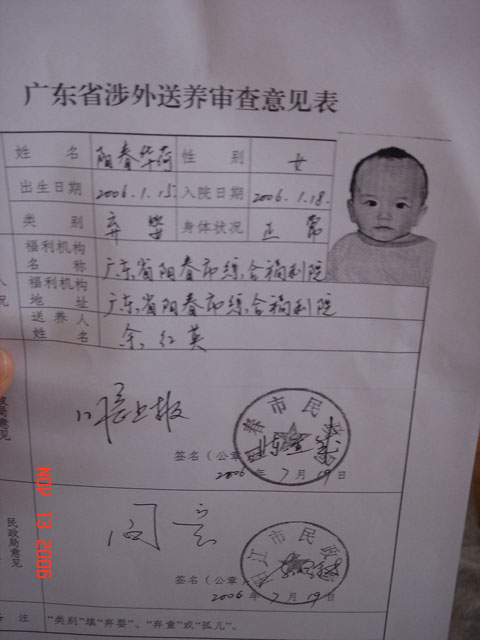 广东省涉外送养审查意见表
姓 名 阳春华荷 性 别 女
出生日期 2006.1.15. 入院日期 2006.1.18.
类 别 弃婴 身体状况 正常
福利机构名称 广东省阳春市综合福利院
福利机构地址 广东省阳春市综合福利院
送养人姓名 余红英
同意上报
春市民
签名(公章)
2006 年 7 月 19 日
民政局意见
同意
江市民
签名(公章)
2006 年 7 月 19 日
注 “类别”填“弃婴”、“弃童”或“孤儿”。
NOV 13 2006